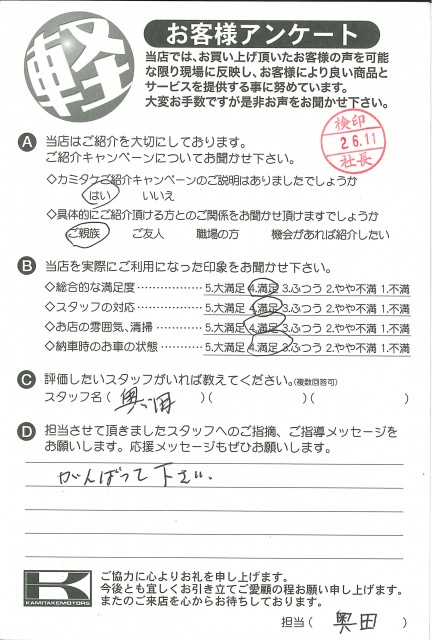 軽
お客様アンケート
当店では、お買い上げ頂いたお客様の声を可能
な限り現場に反映し、お客様により良い商品と
サービスを提供する事に努めています。
大変お手数ですが是非お声をお聞かせ下さい。
検印
26.11
社長
A 当店はご紹介を大切にしております。
ご紹介キャンペーンについてお聞かせ下さい。
◇カミタケご紹介キャンペーンのご説明はありましたでしょうか
はい いいえ
◇具体的にご紹介頂ける方とのご関係をお聞かせ頂けますでしょうか
ご親族 ご友人 職場の方 機会があれば紹介したい
B 当店を実際にご利用になった印象をお聞かせ下さい。
◇総合的な満足度………………5.大満足 4.満足 3.ふつう 2.やや不満 1.不満
◇スタッフの対応………………5.大満足 4.満足 3.ふつう 2.やや不満 1.不満
◇お店の雰囲気、清掃…………5.大満足 4.満足 3.ふつう 2.やや不満 1.不満
◇納車時のお車の状態…………5.大満足 4.満足 3.ふつう 2.やや不満 1.不満
C 評価したいスタッフがいれば教えてください。(複数回答可)
スタッフ名( 奥田 )( )( )
D 担当させて頂きましたスタッフへのご指摘、ご指導メッセージを
お願いします。応援メッセージもぜひお願いします。
がんばって下さい.
K
KAMITAKEMOTORS
ご協力に心よりお礼を申し上げます。
今後とも宜しくお引き立てご愛顧の程お願い申し上げます。
またのご来店を心からお待ちしております。
担当( 奥田 )